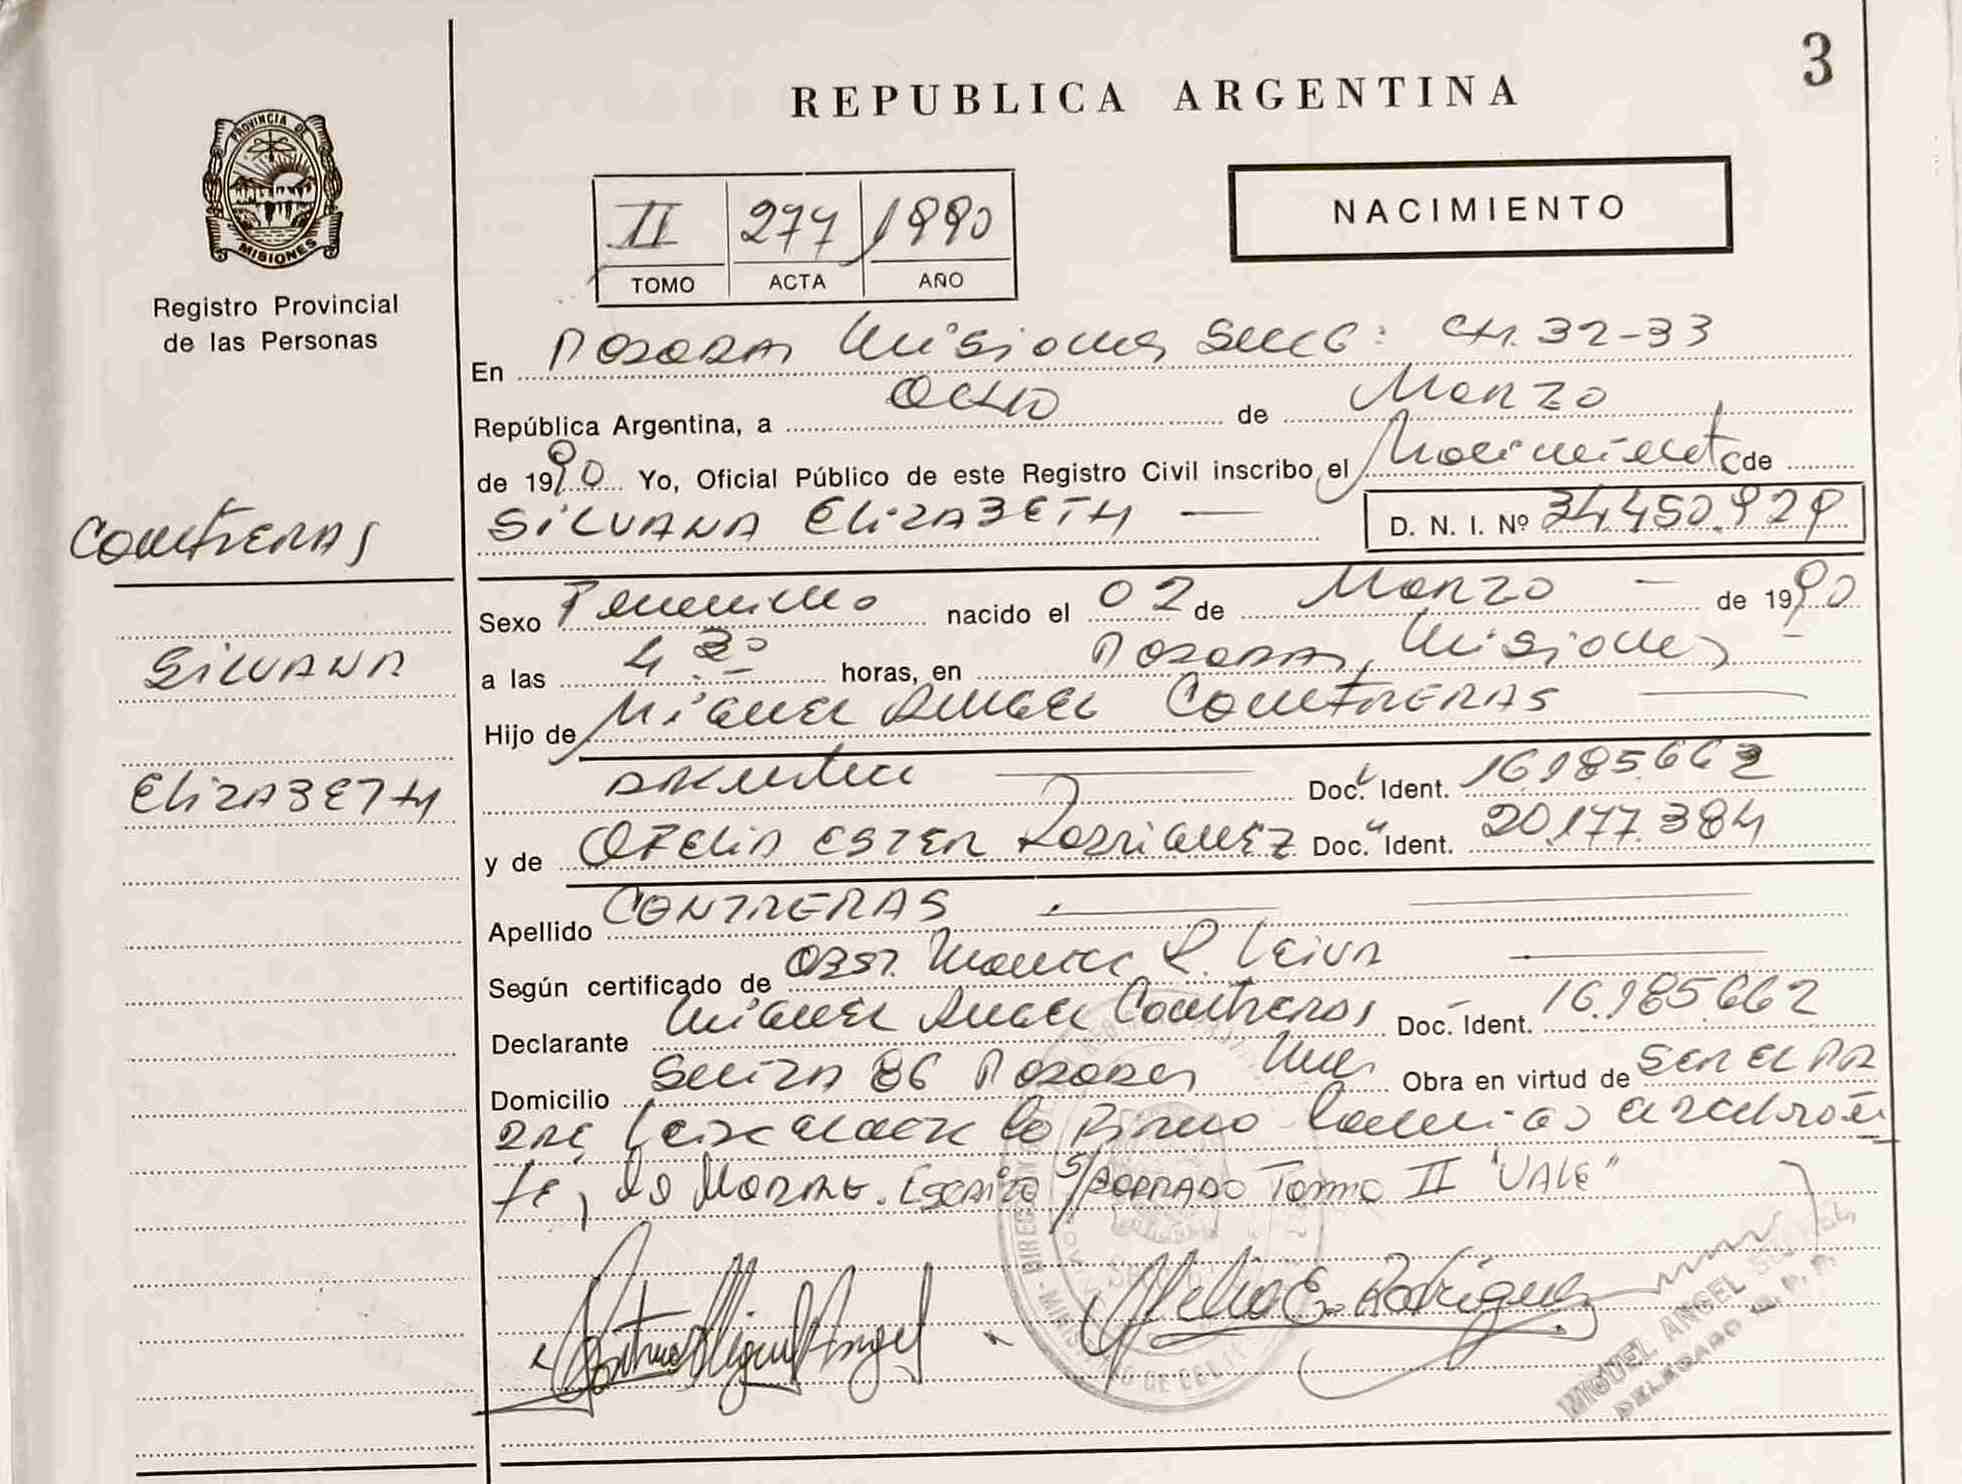 3
REPUBLICA ARGENTINA
PROVINCIA DE
MISIONES
Registro Provincial
de las Personas
II 277 1990
TOMO ACTA AÑO
NACIMIENTO
En Posadas Misiones Secc: CH. 32-33
República Argentina, a Ocho de Marzo
de 1990 Yo, Oficial Público de este Registro Civil inscribo el Nacimiento de
Contreras
SILVANA ELIZABETH — D. N. I. Nº 34.450.929
Sexo Femenino nacido el 02 de Marzo — de 1990
SILVANA
a las 4 30 horas, en Posadas, Misiones
Hijo de Miguel Angel Contreras
ELIZABETH
Argentino Doc. Ident. 16.985.662
y de OFELIA ESTER Rodriguez Doc. Ident. 20.177.384
Apellido CONTRERAS
Según certificado de OBST. R. Leiva
Declarante Miguel Angel Contreras Doc. Ident. 16.985.662
Domicilio Suiza 86 Posadas Mnes Obra en virtud de SER EL PA
DRE Leida el acta la Firmo
te, la Madre. Escrito s/borrado Tomo II "VALE"
Contreras Miguel Angel
Ofelia E. Rodriguez
MIGUEL ANGEL
DELEGADO R. P. P.